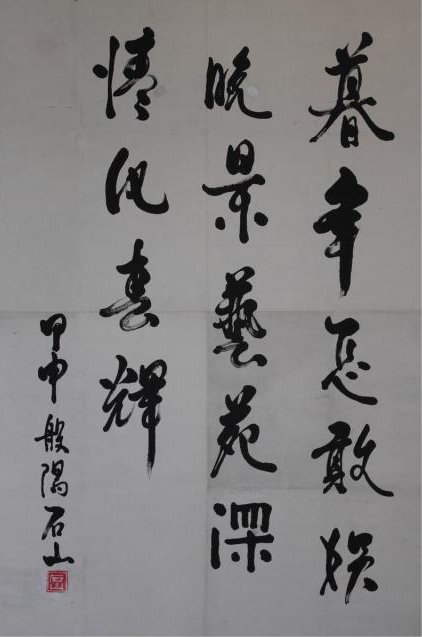 暮年怎敢娱
晚景藝苑深
情春輝
甲申般陽石山